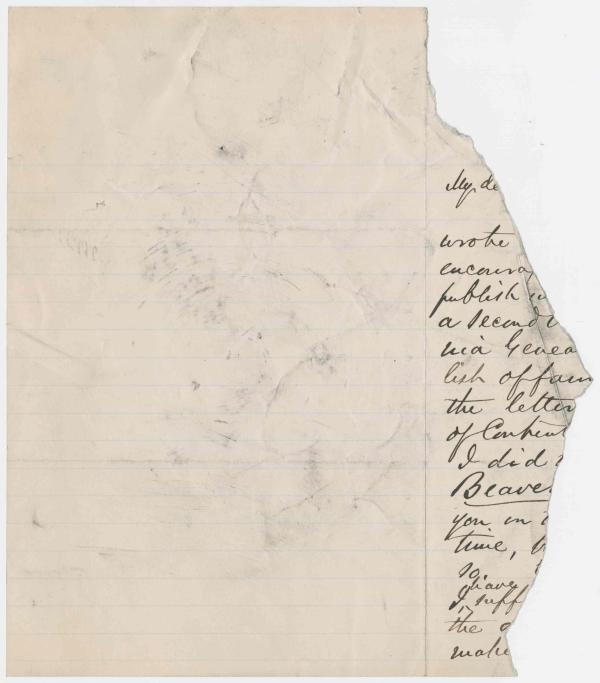 My de
wrote
encoura
publish
a Second
nia Genea
lish of fam
the letter
of Content
I did
Beave
you in
time,
so
have
I suff
the
make